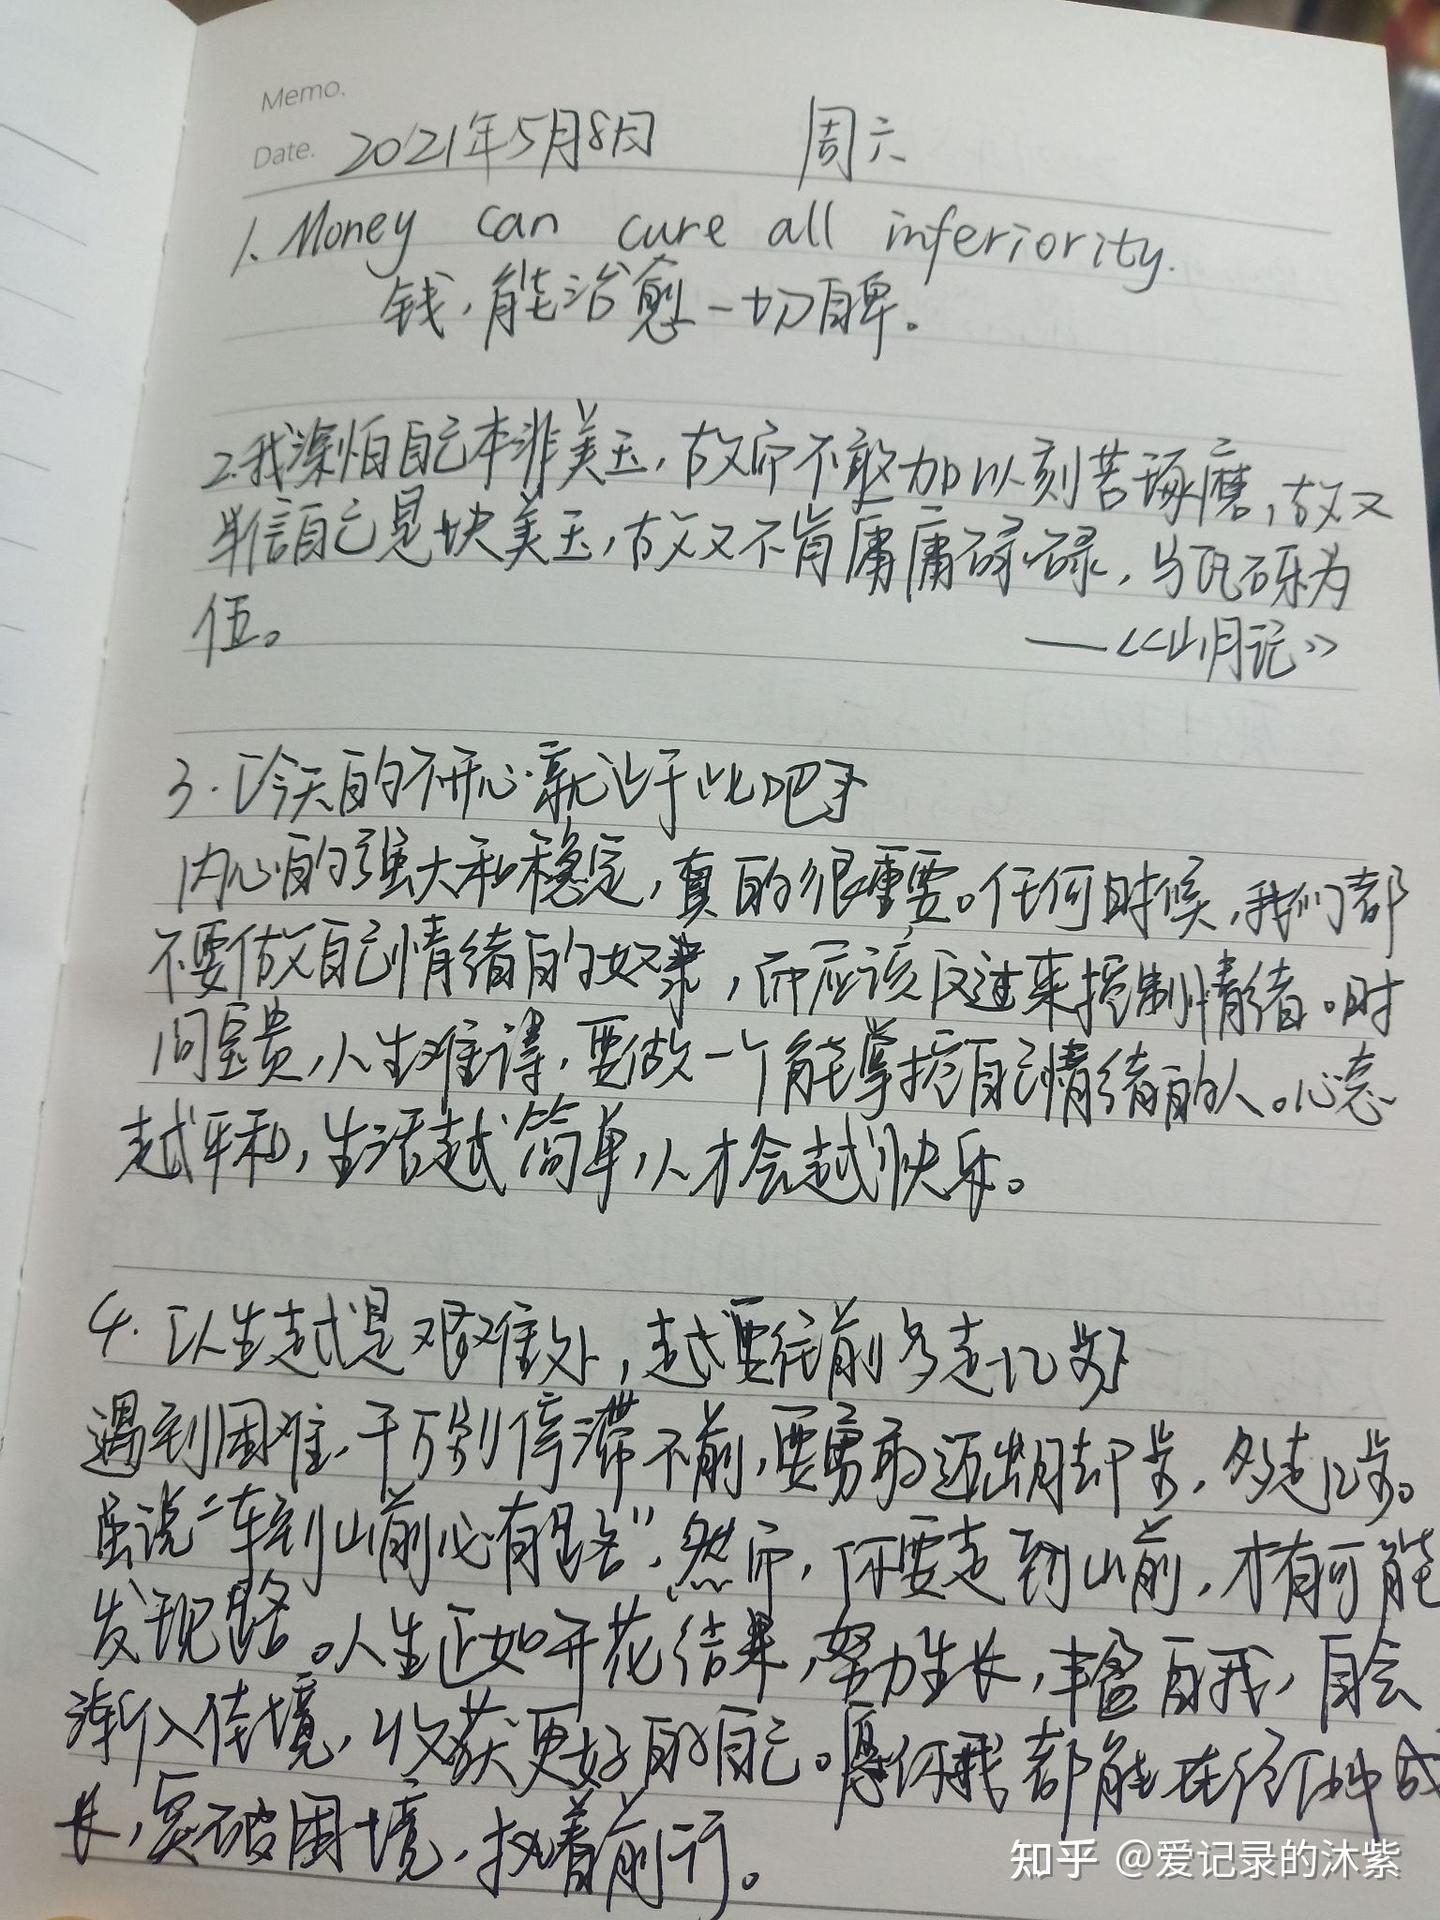 Memo.
Date. 2021年5月8日 周六
1. Money can cure all inferiority.
钱，能治愈一切自卑。
2.我深怕自己本非美玉，故而不敢加以刻苦琢磨，故又
半信自己是块美玉，故又不肯庸庸碌碌，与瓦砾为
伍。 ——《山月记》
3.「今天的不开心就止于此吧」
内心的强大和稳定，真的很重要。任何时候，我们都
不要做自己情绪的奴隶，而应该反过来控制情绪。时
间宝贵，人生难得，要做一个能掌控自己情绪的人。心态
越平和，生活越简单，人才会越快乐。
4.「人生越是艰难处，越要往前多走几步」
遇到困难，千万别停滞不前，要勇敢迈出脚步，多走几步。
虽说“车到山前必有路”，然而，你要走到山前，才有可能
发现路。人生正如开花结果，努力生长，丰盈自我，自会
渐入佳境，收获更好的自己。愿你我都能在行体中成
长，突破困境，执着前行。
知乎 @爱记录的沐紫